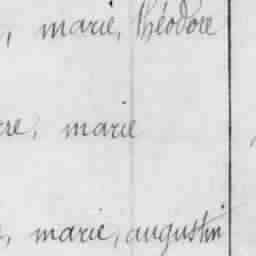 , marie, théodore
re, marie
, marie, augustin